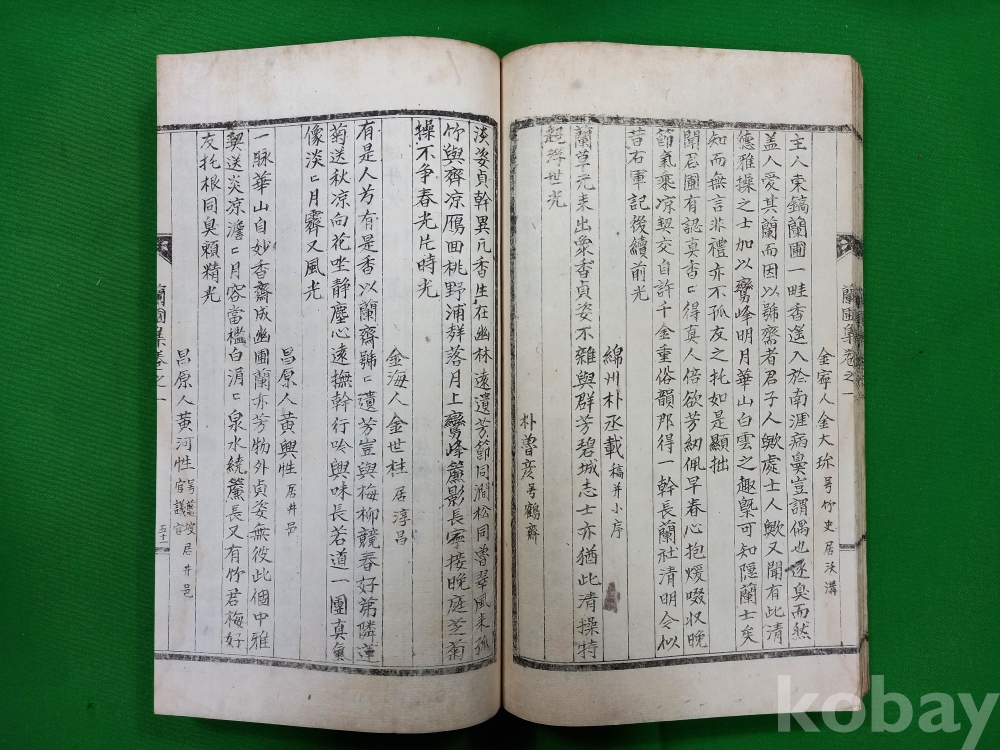 蘭圃集卷之一
金寧人金大珎 号竹史 居汝溝
主人東鎬蘭圃一畦香遙入於南涯病鼻豈謂偶也逐臭而然
盖人愛其蘭而因以號齋者君子人歟處士人歟又聞有此清
德雅操之士加以鸞峰明月華山白雲之趣槩可知隱蘭士矣
知而無言非禮亦不孤友之托如是顯拙
聞君圃有認真香〻得真人倍欲芳納佩早春心抱煖啜收晚
節氣乘凉契交自許千金重俗韻那得一幹長蘭社清明会似
昔右軍記後續前光
綿州朴丞載 稿并小序
蘭草元来出衆香貞姿不雜與群芳碧城志士亦猶此清操特
起浮世光
朴魯彦 号鶴齋
淡姿貞幹異凡香生在幽林遠遺芳節同澗松同曾翠風来孤
竹與齊凉鴈回桃野浦群落月上鸞峰簾影長寧接晚庭芝菊
操不争春光片時光
金海人金世桂 居淳昌
有是人芳有是香以蘭齋號〻遺芳豈與梅柳競春好第隣蓮
菊送秋凉白花坐静塵心遠撫幹行吟興味長若道一團真氣
像淡〻月霽又風光
昌原人黃興性 居井邑
一脉華山自妙香齋成幽圃蘭亦芳物外貞姿無彼此個中雅
契送炎凉澹〻月容當檻白涓〻泉水統簾長又有竹君梅好
友托根同臭賴精光
昌原人黃河性 居井邑 官議官
蘭圃集卷之一
五十一
kobay